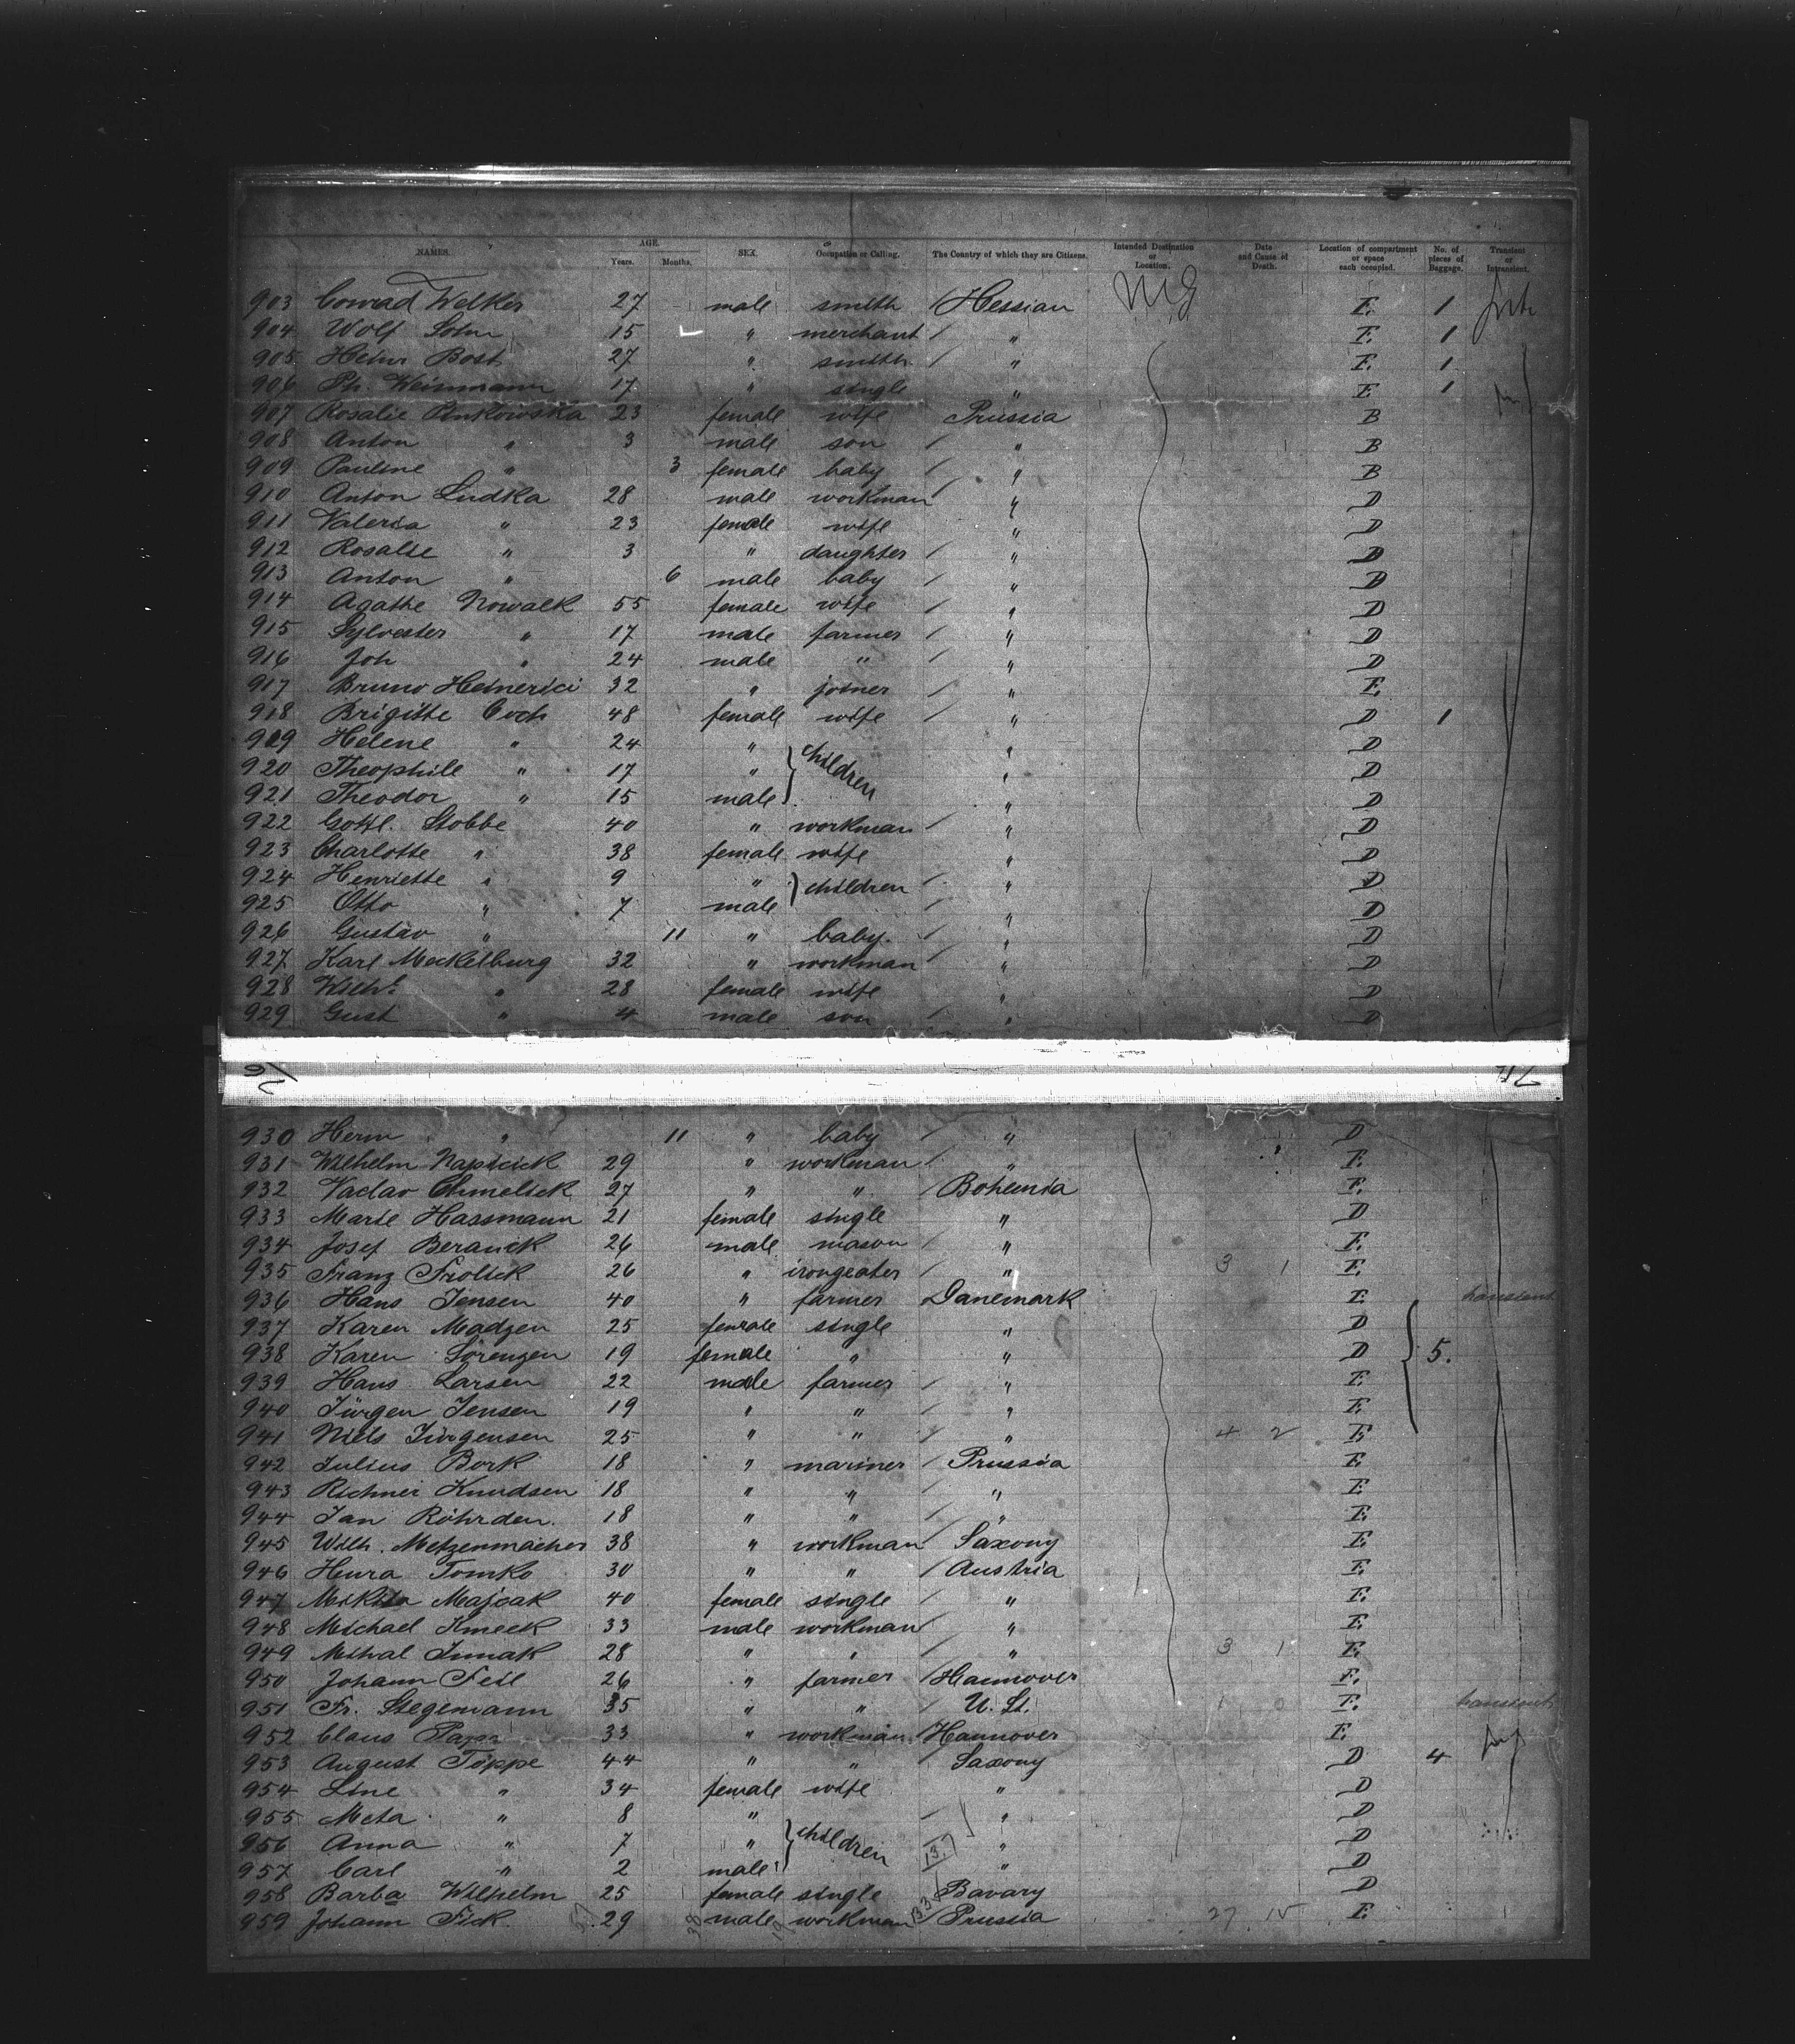 NAMES. AGE. Years. Months. SEX. Occupation or Calling. The Country of which they are Citizens. Intended Destination or Location. Date and Cause of Death. Location of compartment or space each occupied. No. of pieces of Baggage. Transient or Intransient.
903 Conrad Welker 27 male smith Hessian E. 1
904 Wolf Sohn 15 " merchant " E. 1
905 Heinr Bost 27 " smith " E. 1
906 Ph. Weinmann 17 " single " E 1
907 Rosalie 23 female wife Prussia B
908 Anton " 3 male son " B
909 Pauline " 3 female baby " B
910 Anton Ludka 28 male workman " D
911 Valeria " 23 female wife " D
912 Rosalie " 3 " daughter " D
913 Anton " 6 male baby " D
914 Agathe Nowalk 55 female wife " D
915 Sylvester " 17 male farmer " D
916 Joh " 24 male " " D
917 Bruno Heinerici 32 " joiner " E.
918 Brigitte Coch 48 female wife " D 1
919 Helene " 24 " children " D
920 Theophile " 17 " " D
921 Theodor " 15 male " D
922 Gottl. Stobbe 40 " workman " D
923 Charlotte " 38 female wife " D
924 Henriette " 9 " children " D
925 Otto " 7 male " D
926 Gustav " 11 " baby. " D
927 Karl Meckelburg 32 " workman " D
928 Wilh. " 28 female wife " D
929 Gust " 4 male son " D
930 Herm " 11 " baby " D
931 Wilhelm Napicick 29 " workman " E.
932 Vaclav Chmelick 27 " " Bohemia E.
933 Marie Hassmann 21 female single " D
934 Josef Beranek 26 male mason " E.
935 Franz Frolick 26 " " 3 1 E.
936 Hans Jensen 40 " farmer Danemark E transient
937 Karen Madzen 25 female single " D
938 Karen Sörenzen 19 female " " D 5.
939 Hans Larsen 22 male farmer " E
940 Jürgen Jensen 19 " " " E.
941 Niels Jürgensen 25 " " " 4 2 E
942 Julius Bork 18 " mariner Prussia E.
943 Richner Knudsen 18 " " " E
944 Jan Röhrden. 18 " " " E.
945 Wilh. Metzenmacher 38 " workman Saxony E
946 Hura Tomko 30 " " Austria E
947 Mikita Majcak 40 female single " E
948 Michael Kmeck 33 male workman " E
949 Mihal Simak 28 " " " 3 1 E.
950 Johann Feil 26 " farmer Hannover E.
951 Fr. Stegemann 35 " " U. St. 1 0 E. transient
952 Claus 33 " workman Hannover E.
953 August Töppe 44 " " Saxony D 4
954 Line " 34 female wife " D
955 Meta " 8 " " D
956 Anna " 7 " children 137 " D
957 Carl " 2 male " D
958 Barba Wilhelm 25 female single Bavary D
959 Johann Fick. 29 male workman Prussia 27 15 E